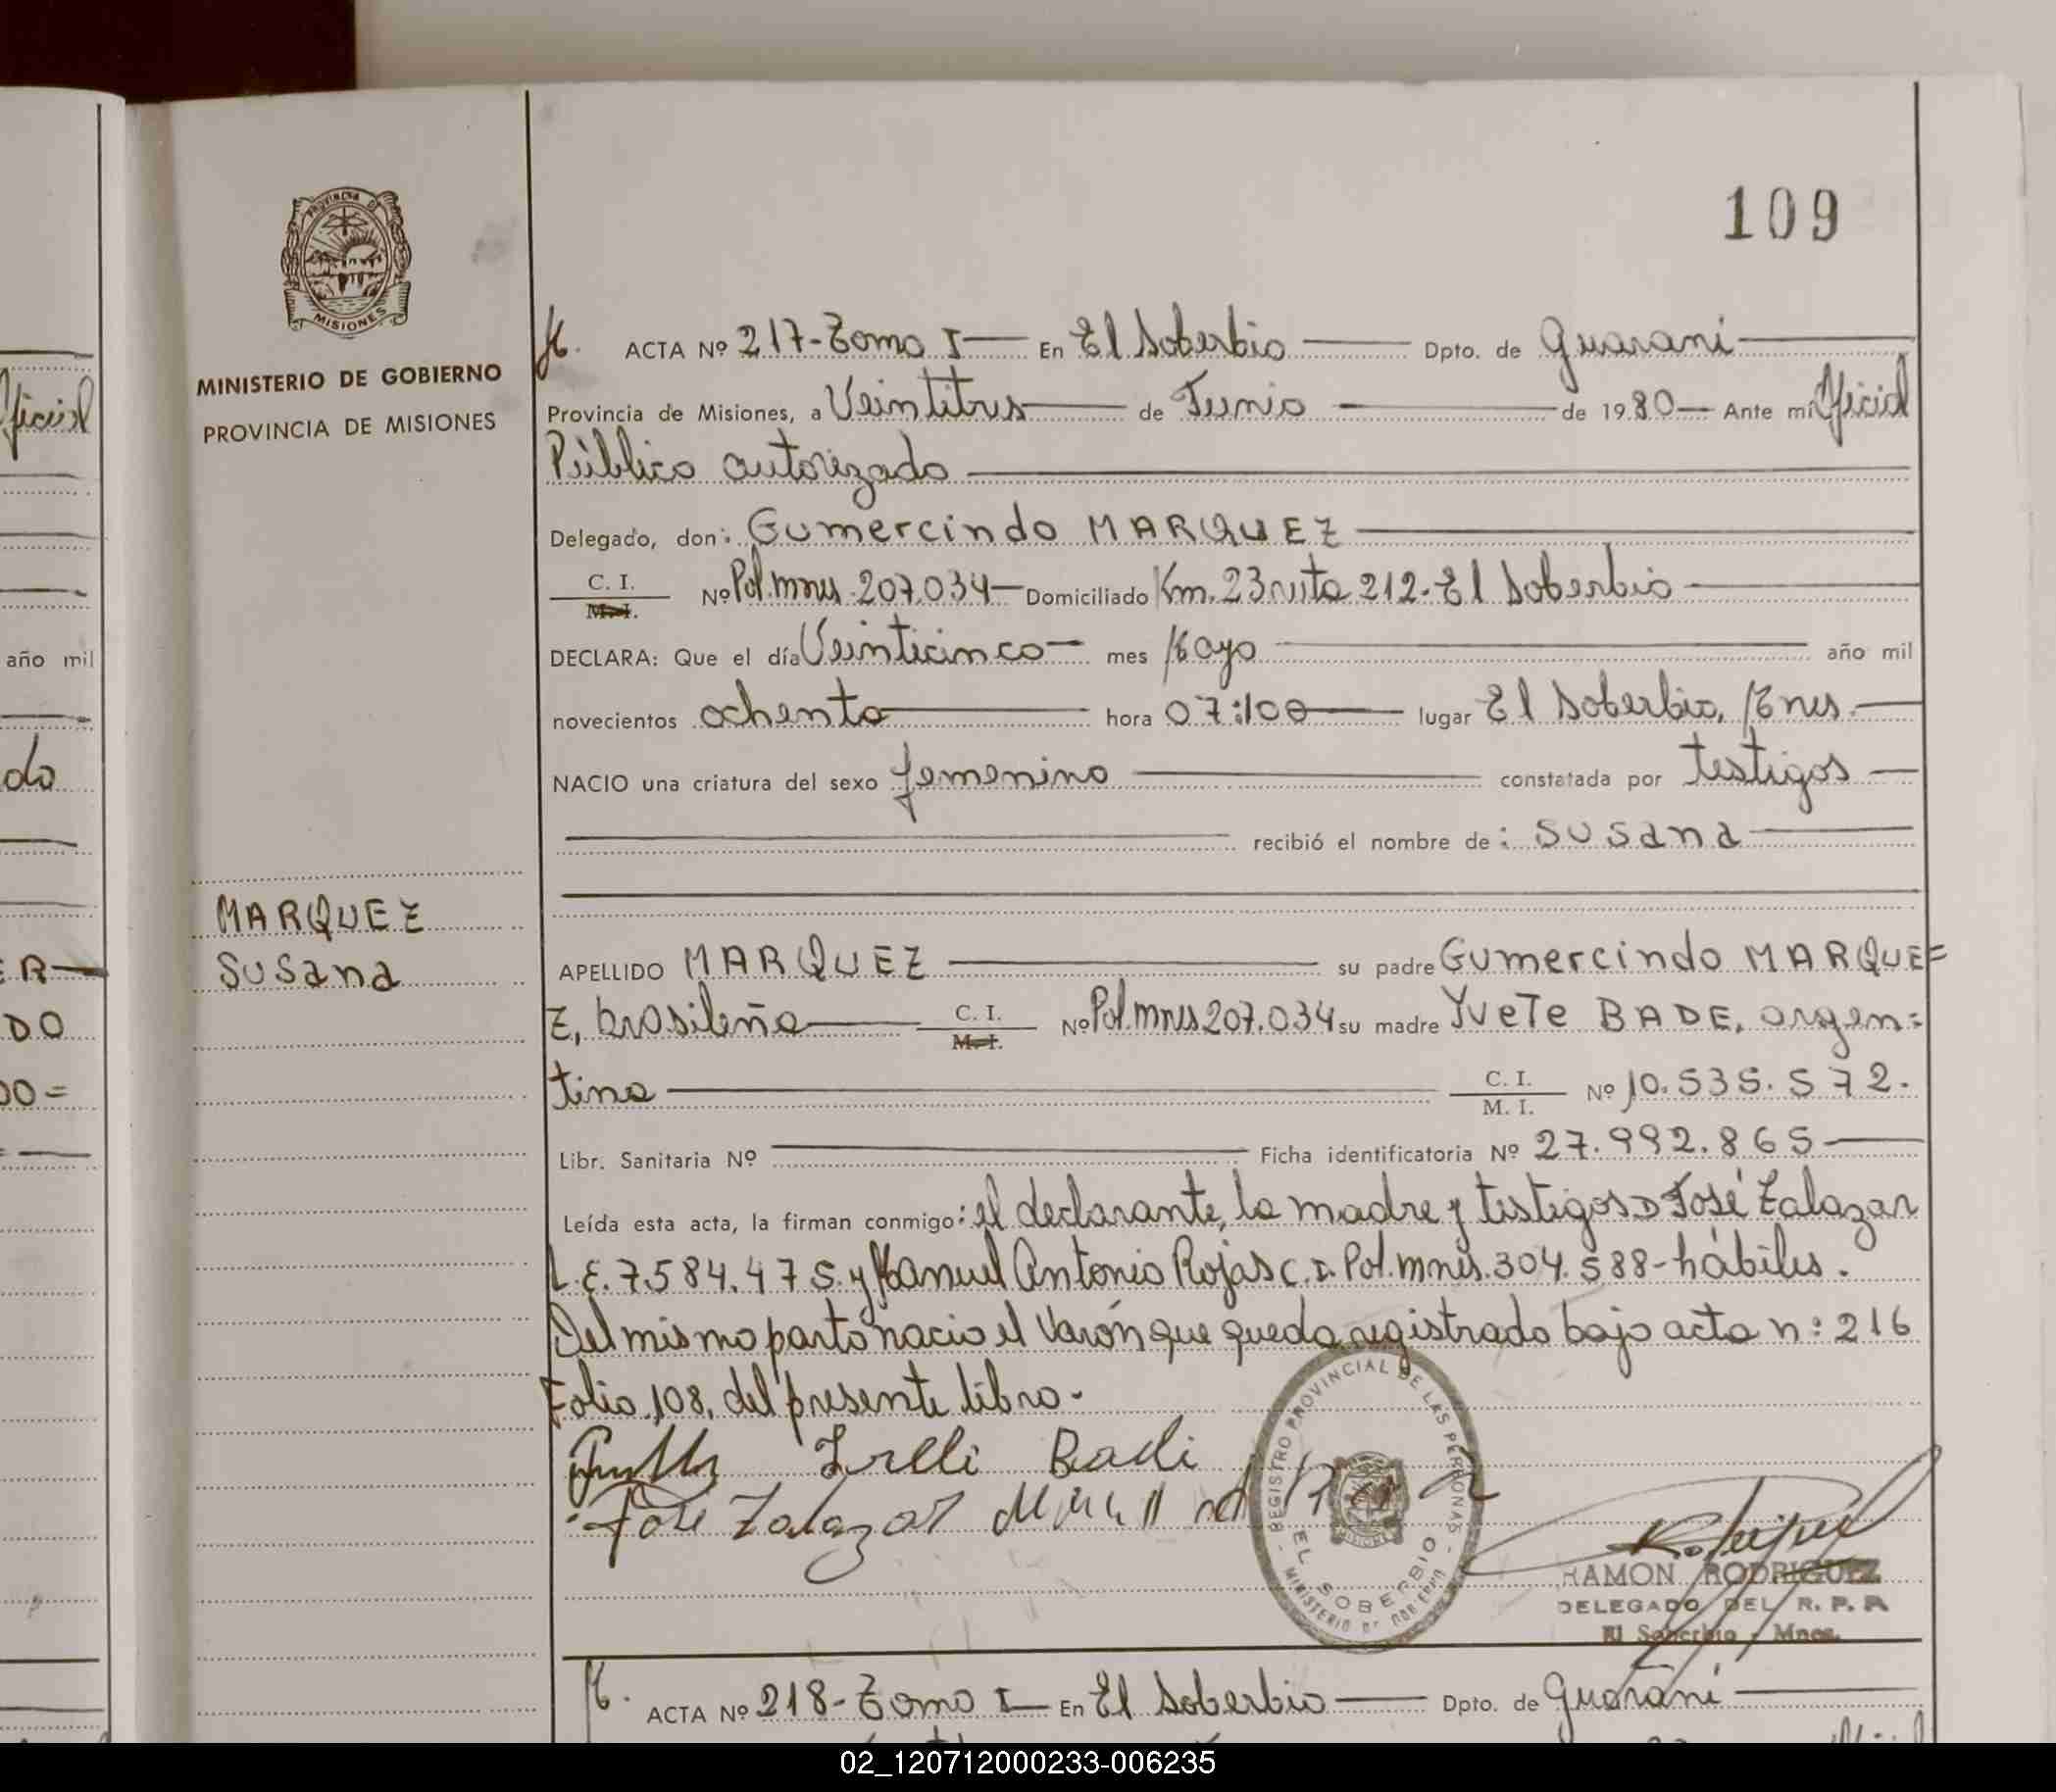 109
PROVINCIA D
MISIONES
MINISTERIO DE GOBIERNO
PROVINCIA DE MISIONES
MARQUEZ
Susana
M. ACTA Nº 217-Tomo I— En El Soberbio — Dpto. de Guaraní —
Provincia de Misiones, a Veintitres — de Junio — de 1980— Ante mí Oficial
Público autorizado —
Delegado, don: Gumercindo MARQUEZ —
C. I. / M. I. Nº Pol. mnes. 207.034— Domiciliado Km. 23 ruta 212-El Soberbio —
DECLARA: Que el día Veinticinco— mes Mayo — año mil
novecientos ochenta — hora 07:100 — lugar El Soberbio, Mnes.—
NACIO una criatura del sexo femenino — constatada por testigos —
— recibió el nombre de: Susana —
APELLIDO MARQUEZ — su padre Gumercindo MARQUE=
Z, brasileña — C. I. / M. I. Nº Pol. mnes 207.034 su madre Yvete BADE, argen=
tina — C. I. / M. I. Nº 10.535.572.
Libr. Sanitaria Nº — Ficha identificatoria Nº 27.992.865 —
Leída esta acta, la firman conmigo: el declarante, la madre y testigos D José Zalazar
L.E. 7.584.475. y Manuel Antonio Rojas C.I. Pol. mnes. 304.588-hábiles.
Del mismo parto nacio el Varón que queda registrado bajo acta n: 216
Folio 108, del presente libro.
Badi
José Zalazar
REGISTRO PROVINCIAL DE LAS PERSONAS
EL SOBERBIO
MINISTERIO DE GOBIERNO
RAMON RODRIGUEZ
DELEGADO DEL R. P. P.
El Soberbio - Mnes.
M. ACTA Nº 218-Tomo I— En El Soberbio — Dpto. de Guaraní —
Oficial
año mil
do
ER—
DO
DO=
02_120712000233-006235